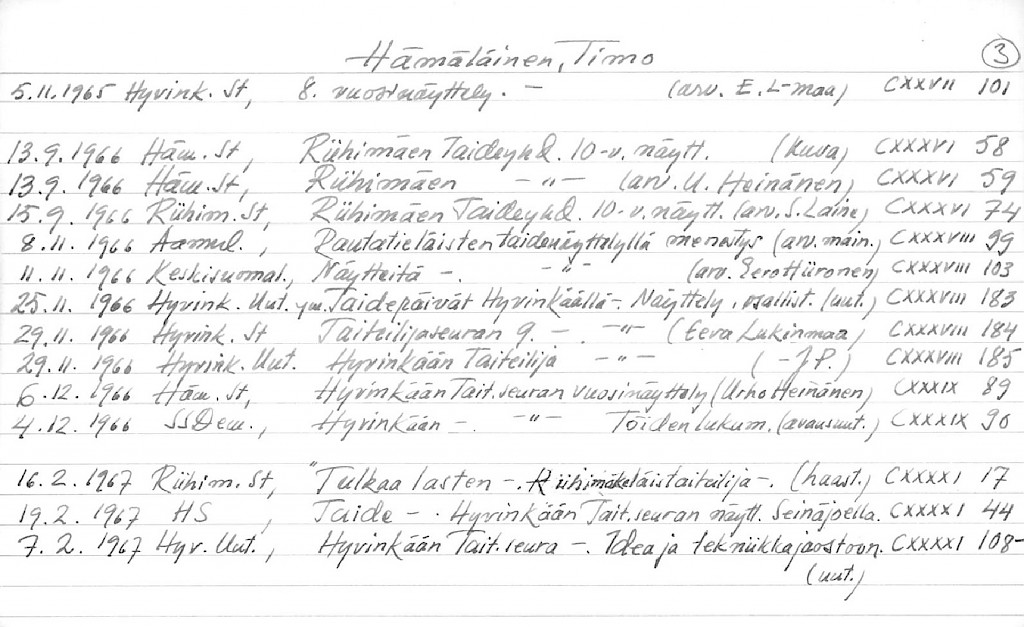 Hämäläinen, Timo 3
5.11.1965 Hyvink. St, 8. vuosinäyttely. - (arv. E. L-maa) CXXXVII 101
13.9.1966 Häm. St, Riihimäen Taideyhd. 10-v. näytt. (kuva) CXXXVI 58
13.9.1966 Häm. St, Riihimäen -"- (arv. U. Heinänen) CXXXVI 59
15.9.1966 Riihim. St, Riihimäen Taideyhd. 10-v. näytt. (arv. S. Laine) CXXXVI 74
8.11.1966 Aamul., Rautatieläisten taidenäyttelyllä menestys (arv. main.) CXXXVIII 99
11.11.1966 Keskisuomal., Näytteitä -. -"- (arv. Eero Hiironen) CXXXVIII 103
25.11.1966 Hyvink. Uut. ym. Taidepäivät Hyvinkäällä -. Näyttely, osallist. (uut.) CXXXVIII 183
29.11.1966 Hyvink. St Taiteilijaseuran 9. - -"- (Eeva Lukinmaa) CXXXVIII 184
29.11.1966 Hyvink. Uut. Hyvinkään Taiteilija -"- ( -J P.) CXXXVIII 185
6.12.1966 Häm. St, Hyvinkään Tait.seuran vuosinäyttely (Urho Heinänen) CXXXIX 89
4.12.1966 SSDem., Hyvinkään -. -"- Töiden lukum. (avausuut.) CXXXIX 90
16.2.1967 Riihim. St, "Tulkaa lasten -. Riihimäkeläistaiteilija -. (haast.) CXXXXI 17
19.2.1967 HS, Taide - . Hyvinkään Tait.seuran näytt. Seinäjoella. CXXXXI 44
7.2.1967 Hyv. Uut., Hyvinkään Tait.seura -. Idea ja tekniikkajaostoon. CXXXXI 108-
(uut.)